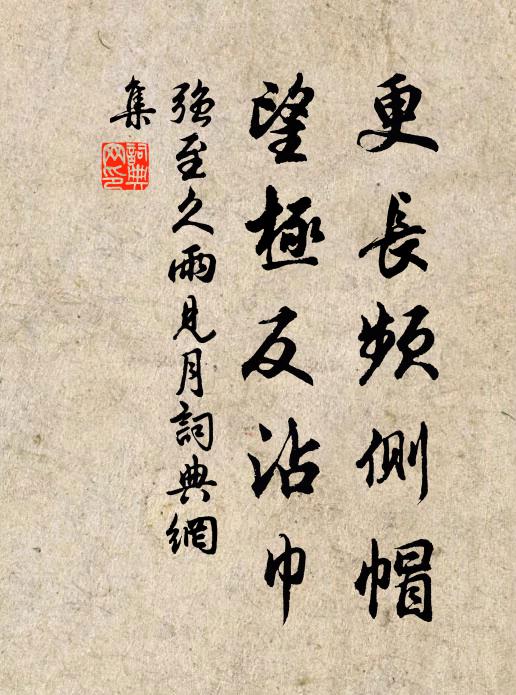 更長頻側帽
望極反沾巾
強至久雨見月詞典網
集
詞典
网印